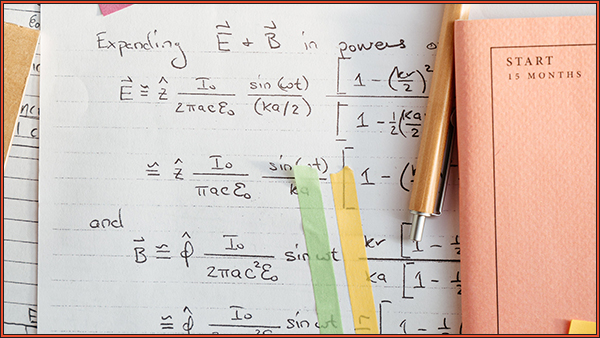 Expanding E⃗ + B⃗ in powers o
E⃗ ≅ ẑ I₀/2πacε₀ sin(ωt)/(ka/2) [1 - (kr/2)²/[1 - ½(ka/2
≅ ẑ I₀/πacε₀ sin(ωt)/ka [1 - (k
and
B⃗ ≅ φ̂ I₀/2πac²ε₀ sin ωt kr/ka [1 - ½/[1 - ½
≅ φ̂ I₀ sin ωt [1 - ½
START
15 MONTHS